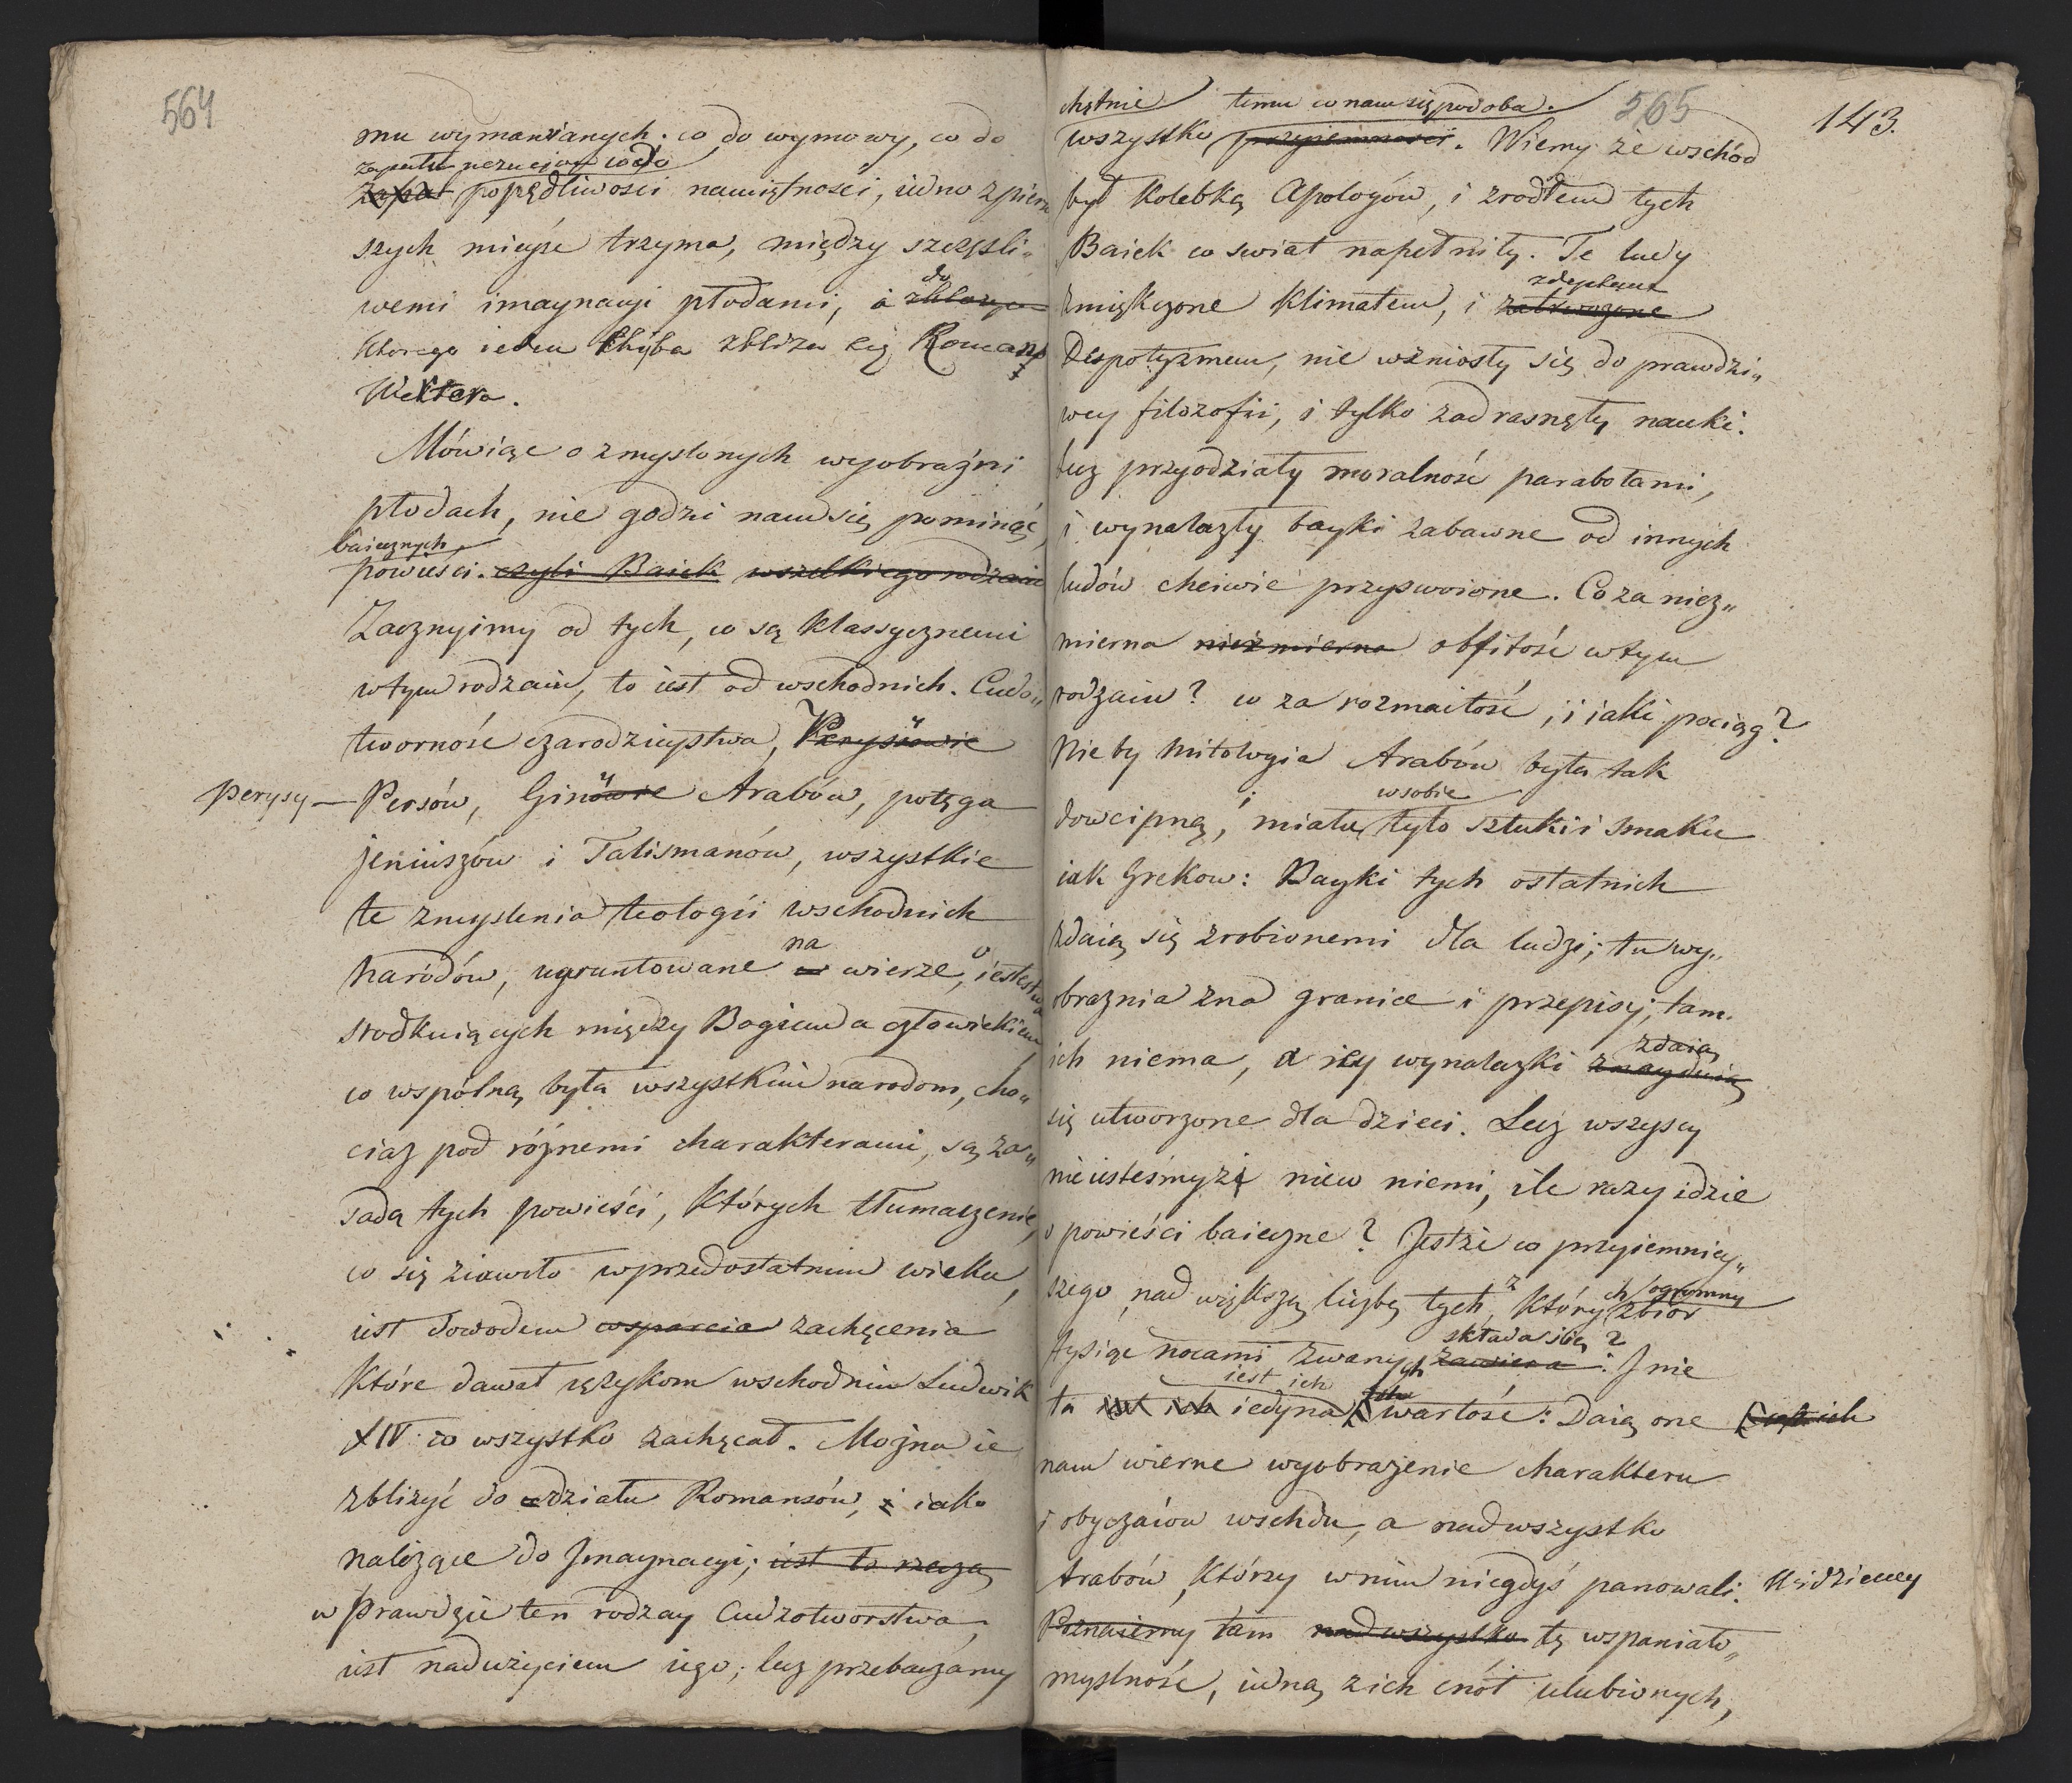 564
mu wymarzanych. co do wymowy, co do
zapału uczuciow co do
zapał popędliwosci namiętnośći, iedno z pierw
szych mieysc trzyma, między szczęsli„
wemi imaynacyi płodami, i do zbliza
ktorego ieden Chyba zbliża się Romans
Wertera.
Mówiąc o zmyslonych wyobraźni
płodach, nie godzi nam się pominąć,
baiecznych
powieści. czyli Baiek wszelkiego rodzaiu
Zacznyimy od tych, co są klassycznemi
w tym rodzaiu, to iest od wschodnich. Cudo„
tworność czarodzieystwa, Perysiowie
perysy — Persów, Ginowie Arabów, potęga
jeniuszów i Talismanów, wszystkie
te zmyslenia teologii wschodnich
Narodów, ugruntowane na w wierze, o iestestwa
srodkuiących między Bogiem a człowiekiem
co wspólną była wszystkim narodom, cho„
ciaz pod róznemi charakterami, są za„
sadą tych powieści, których tłumaczenie,
co się ziawiło w przedostatnim wieku,
iest dowodem wsparcia zachęcenia
które dawał ięzykom wschodnim Ludwik
XIV co wszystko zachęcał. Mozna ie
zbliżyć do działu Romansów, i iako
nalezące do Jmaynacyi; iest to rzeczą
w Prawdzie ten rodzay Cudzotworstwa,
iest naduzyciem iego; lecz przebaczamy
565
143.
chętnie temu co nam się podoba.
wszystko przyiemnosci. Wiemy że wschód
był kolebką Apologów, i zrodłem tych
Baiek co swiat napełniły. Te ludy
zdeptane
zmiękczone klimatem, i zatrwożone
Despotyzmem, nie wzniosły się do prawdzi„
wey filozofii, i tylko zadrasnęły nauki.
lecz przyodziały moralność parabolami,
i wynalazły bayki zabawne od innych
ludów chciwie przyswoione. Co za niez„
mierna niezmierna obfitość w tym
rodzaiu? co za rozmaitość, i iaki pociąg?
Nie by Mitologia Arabów była tak
w sobie
dowcipną, i miała tyło sztuki i smaku
iak Grekow: Bayki tych ostatnich
zdaią się zrobionemi dla ludzi; tu wy„
obraznia zna granice i przepisy; tam
zdaią
ich niema, a iey wynalazki znayduią
się utworzone dla dzieci. Lecz wszyscy
nie iestesmyzi niew niemi, ile razy idzie
o powieści baieczne? Jestże co przyiemniey„
szego nad większą liczbę tych, z których ogromny zbiór
składa się?
tysiąc nocami zwanych zawiera: J nie
iest ich
ta iest ich iedyna wartość: Daią one
nam wierne wyobrażenie charakteru
i obyczaiow wschdu, a nadwszystko
Arabów, którzy w nim niegdyś panowali. Widziemy
Poznaiemy tam nadwszystko tę wspaniało„
myslność, iedną z ich cnót ulubionych,